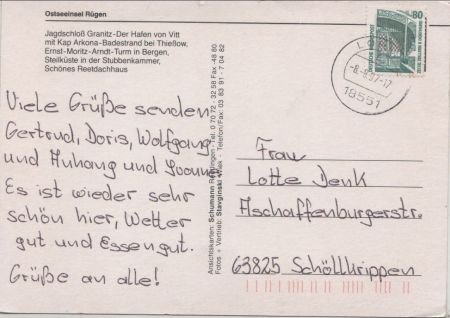 Ostseeinsel Rügen
Jagdschloß Granitz-Der Hafen von Vitt
mit Kap Arkona-Badestrand bei Thießow,
Ernst-Moritz-Arndt-Turm in Bergen,
Steilküste in der Stubbenkammer,
Schönes Reetdachhaus
Viele Grüße senden
Gertrud, Doris, Wolfgang
und Anhang und
Es ist wieder sehr
schön hier, Wetter
gut und Essen gut.
Grüße an alle!
Ansichtskarten: Schumann Reutlingen - Tel. 0 70 72 - 32 58 Fax -48 80
Fotos + Vertrieb: Telefon/Fax: 03 83 91 - 7 04 82
80
-8.-8.97-17
18551
Frau
Lotte Denk
Aschaffenburgerstr.
63825 Schöllkrippen